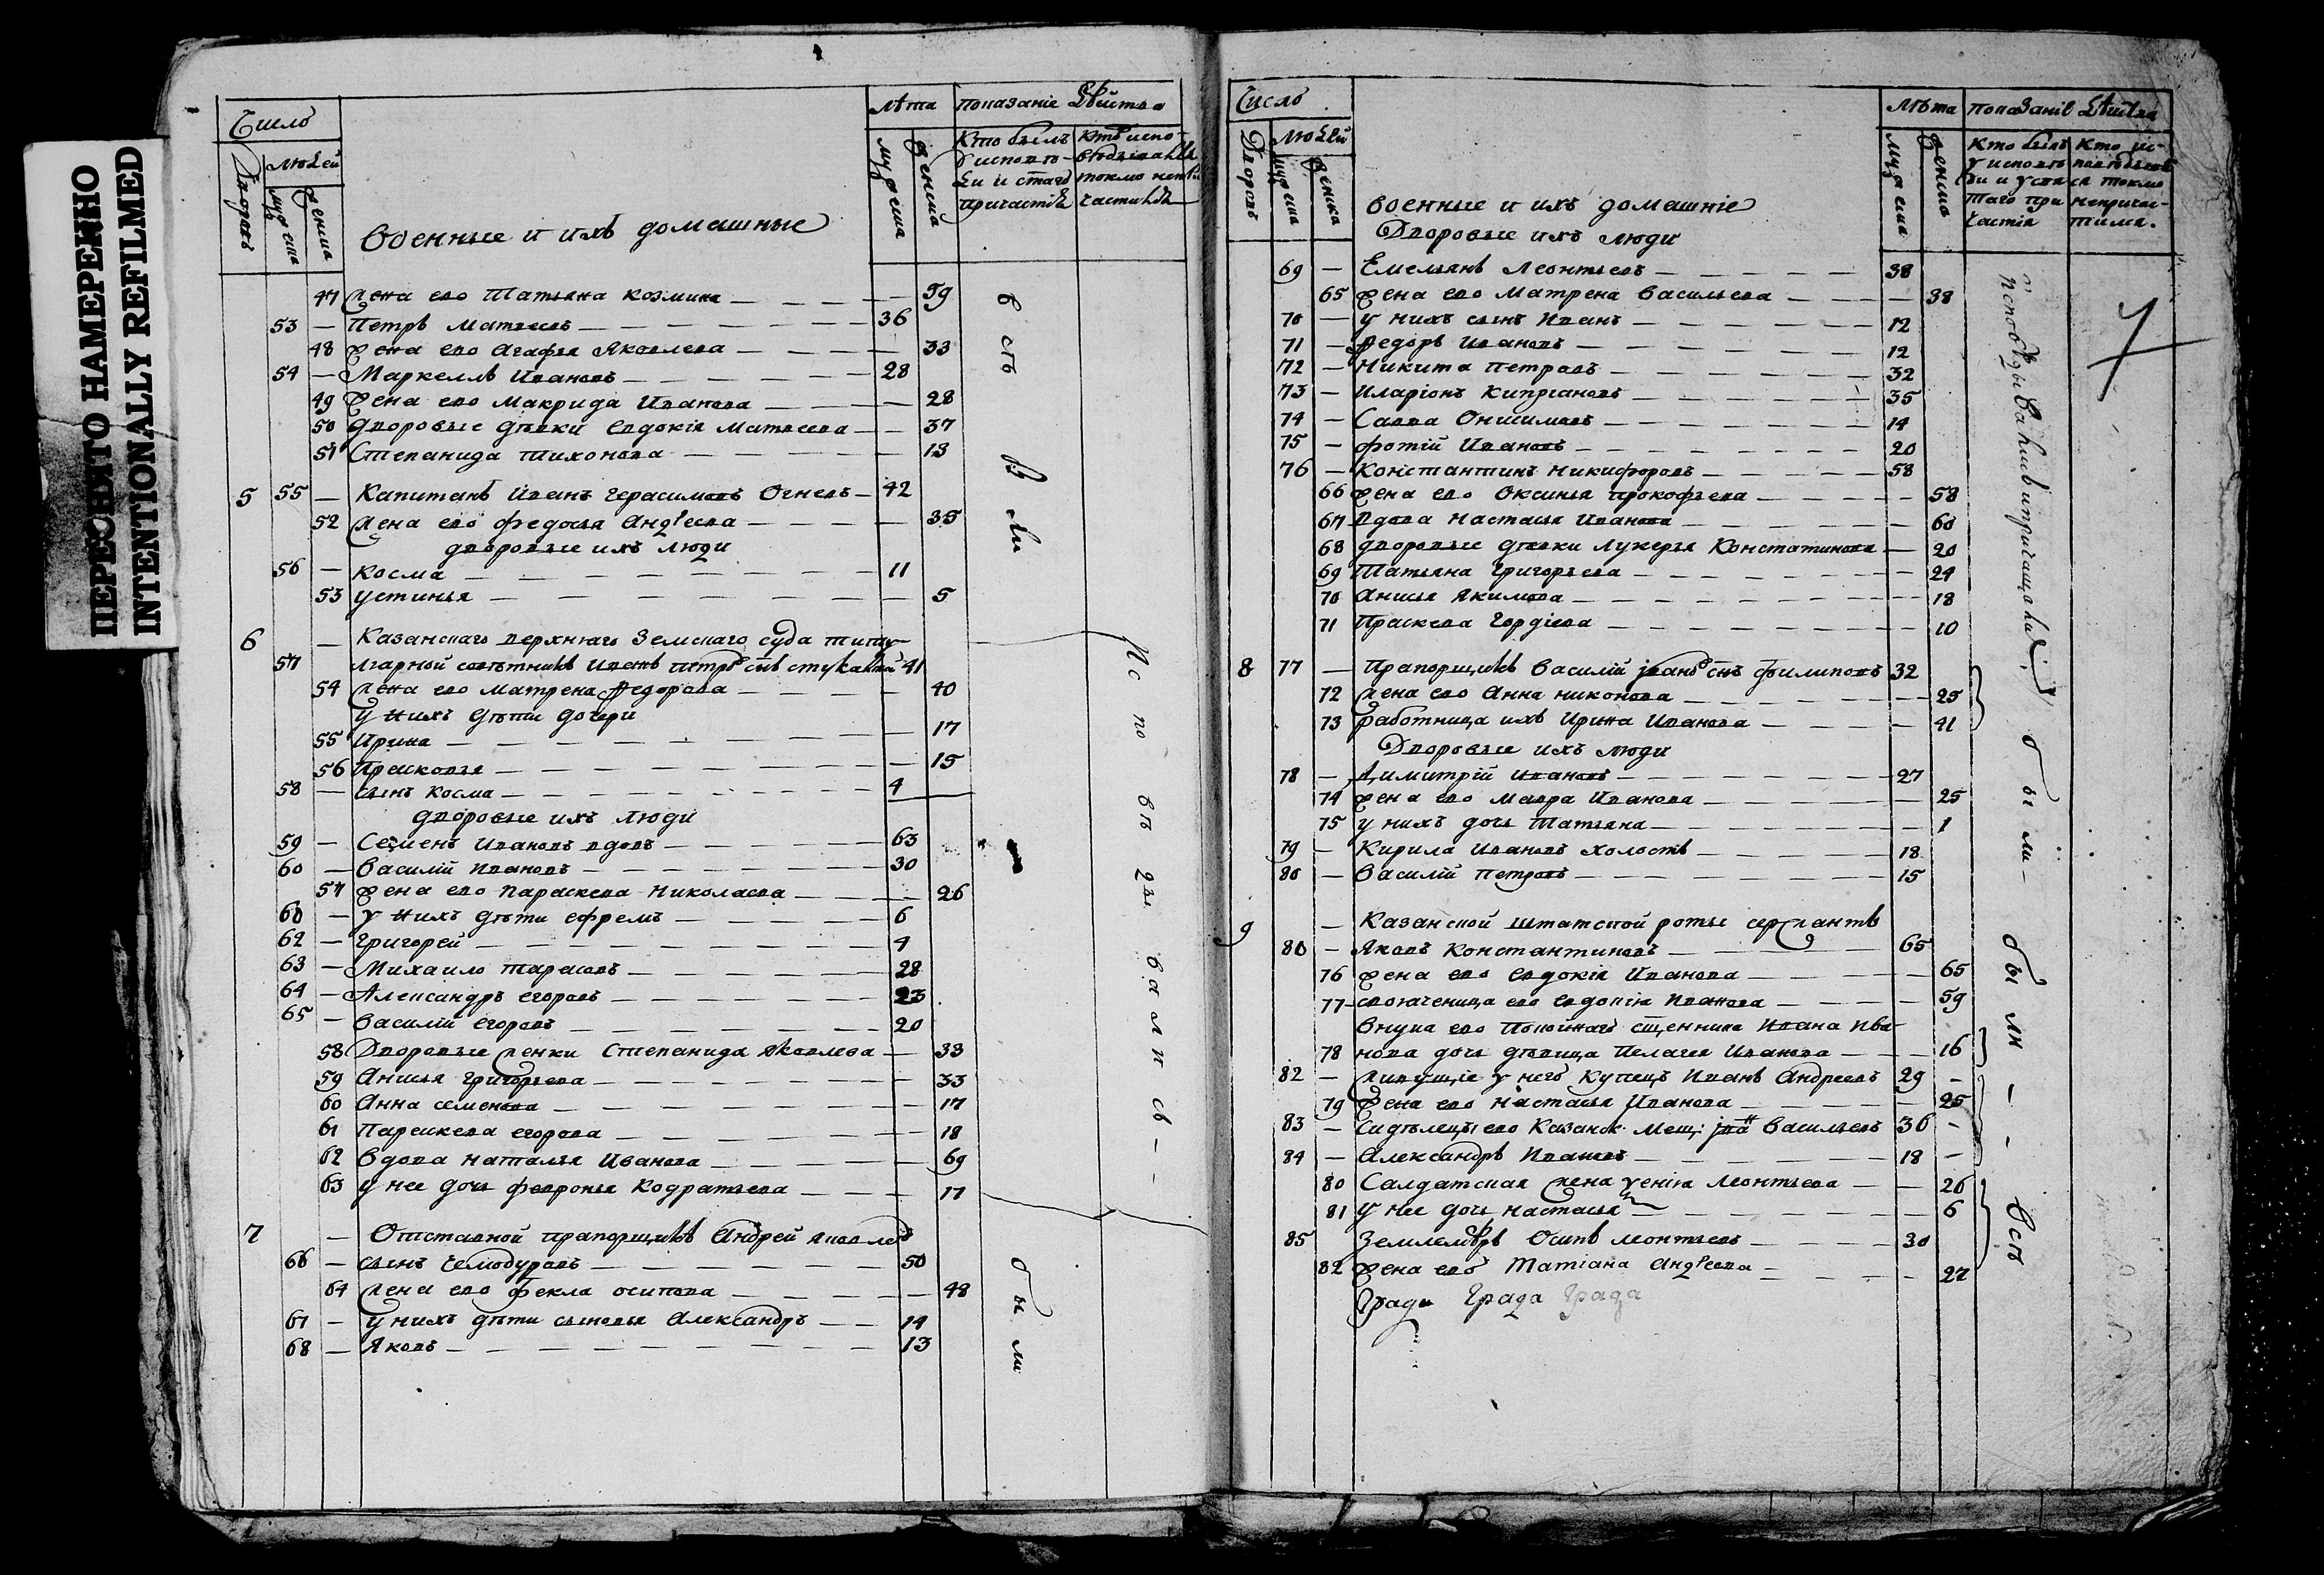 ПЕРЕСНЯТО НАМЕРЕННО
INTENTIONALLY REFILMED
Число
Дворовъ
людей
мужеска
женска
военные и ихъ домашные
лѣта
мужеска
женска
показаніе дѣйства
Кто былъ
Кто испо-
вѣдывался
токмо непри
частился
47 жена ево Татьяна козмина — 59
53 — Петръ Матвеевъ — 36
48 жена ево Агафья Яковлева — 33
54 — Маркеллъ Ивановъ — 28
49 жена ево Макрида Иванова — 28
50 дворовые дѣвки Евдокія Матвеева — 37
51 Степанида тихонова — 13
5 55 — Капитанъ Иванъ герасимовъ Огневъ — 42
52 жена ево федосья Андреева — 35
дворовые ихъ люди
56 — Косма — 11
53 устинья — 5
6 — Казанскаго верхняго Земскаго суда титу-
57 лярной советникъ Иванъ петровъ снъ 41
54 жена ево Матрена федорова — 40
у нихъ дѣти дочери
55 Ирина — 17
56 Прасковья — 15
58 — сынъ Косма — 4
дворовые ихъ люди
59 — Семенъ Ивановъ вдовъ — 63
60 — Василій Ивановъ — 30
57 жена ево параскева Николаева — 26
61 — у нихъ дѣти ефремъ — 6
62 — Григорей — 4
63 — Михаило тарасовъ — 28
64 — Александръ егоровъ — 23
65 — Василій егоровъ — 20
58 Дворовые женки Степанида Яковлева — 33
59 Анисья Григорьева — 33
60 Анна семенова — 17
61 Параскева егорова — 18
62 вдова наталья Иванова — 69
63 у нее дочь февронья Кодратьева — 17
7 — Отставной прапорщикъ Андрей яковлевъ
66 — сынъ Чемодуровъ — 50
64 жена ево фекла осипова — 48
67 — у нихъ дѣти сыновья Александръ — 14
68 — Яковъ — 13
всѣ
Исповѣдывались
были
Число
Дворовъ
людей
мужеска
женска
военные и ихъ домашніе
Дворовые ихъ люди
лѣта
мужеска
женска
показаніе дѣйства
Кто былъ
у исповѣ
ди и у свя
таго при
частія
Кто ис-
повѣдывал
ся токмо
непричас-
тился.
69 — Емельянъ леонтьевъ — 38
65 жена ево Матрена васильева — 38
70 — у нихъ сынъ Иванъ — 12
71 — федоръ Ивановъ — 12
72 — Никита петровъ — 32
73 — Иларіонъ Кипріановъ — 35
74 — Савва Онисимовъ — 14
75 — фотій Ивановъ — 20
76 — Константинъ никифоровъ — 58
66 жена ево Оксинья прокофьева — 58
67 вдова настасья Иванова — 60
68 дворовые дѣвки лукерья Констатинова — 20
69 Татьяна Григорьева — 24
70 анисья якимова — 18
71 Праскева гордіева — 10
8 77 — Прапорщикъ василій івановъ снъ филиповъ 32
72 жена ево анна никонова — 25
73 работница ихъ Ирина Иванова — 41
Дворовые ихъ люди
78 — Димитрій Ивановъ — 27
74 жена ево мавра Иванова — 25
75 у нихъ дочь Татьяна — 1
79 — Кирила Ивановъ холостъ — 18
80 — василій петровъ — 15
9 — Казанской штатской роты сержантъ
81 — Яковъ Константиновъ — 65
76 жена ево евдокія Иванова — 65
77 — свояченица ево евдокія Иванова — 59
внука ево покойнаго сщенника Ивана Ива-
78 нова дочь дѣвица Пелагея Иванова — 16
82 — живущіе у него Купецъ Иванъ Андреевъ 29 —
79 жена ево настасья Иванова — 25
83 — сидѣлецъ ево Казанск. мещ: іванъ васильевъ 36 —
84 — Александръ Ивановъ — 18 —
80 Салдатская жена леонтьева — 26
81 у нее дочь настасья — 6
85 землемѣръ Осипъ леонтьевъ — 30
82 жена ево Татіана Андреева — 27
Града Града Града
исповѣдывались и причащались
были
были
всѣ